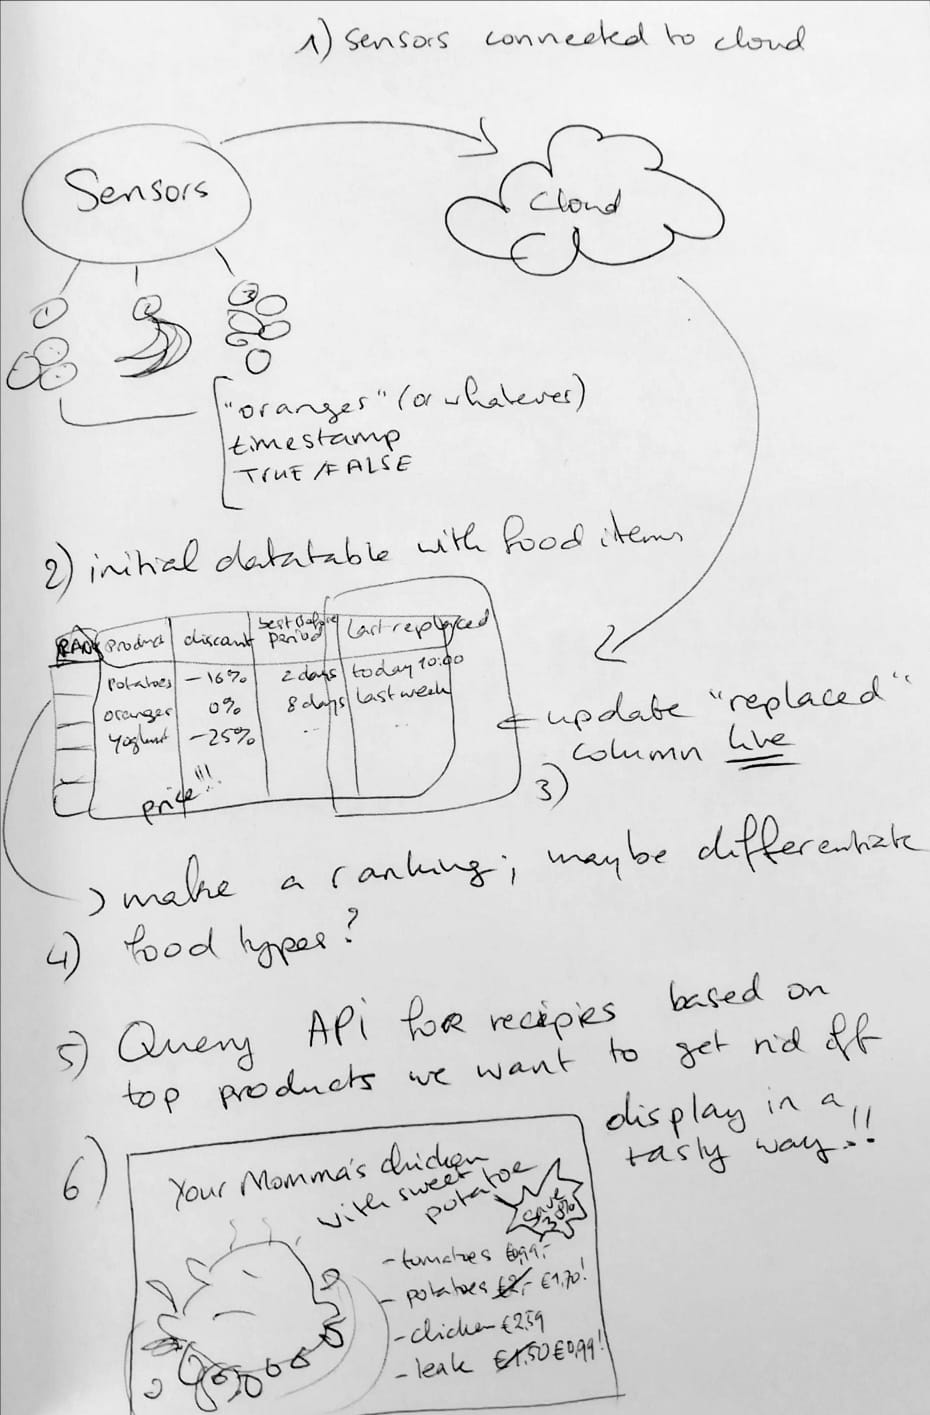 1) sensors connected to cloud
Sensors
Cloud
1
2
3
"oranges" (or whatever)
timestamp
TRUE/FALSE
2) initial datatable with food items
RANK product discount best before period last replaced
Potatoes -16% 2 days today 10:00
oranges 0% 8 days last week
Yoghurt -25% .. ..
price!!!
update "replaced"
column live
3)
make a ranking; maybe differentiate
4) food types?
5) Query API for recipies based on
top products we want to get rid off
display in a
tasty way!!
6)
Your Momma's chicken
with sweet
potatoe
save
30%
- tomatoes €0,99,-
- potatoes €2,- €1,70!
- chicken €2,59
- leak €1.50 €0,99!